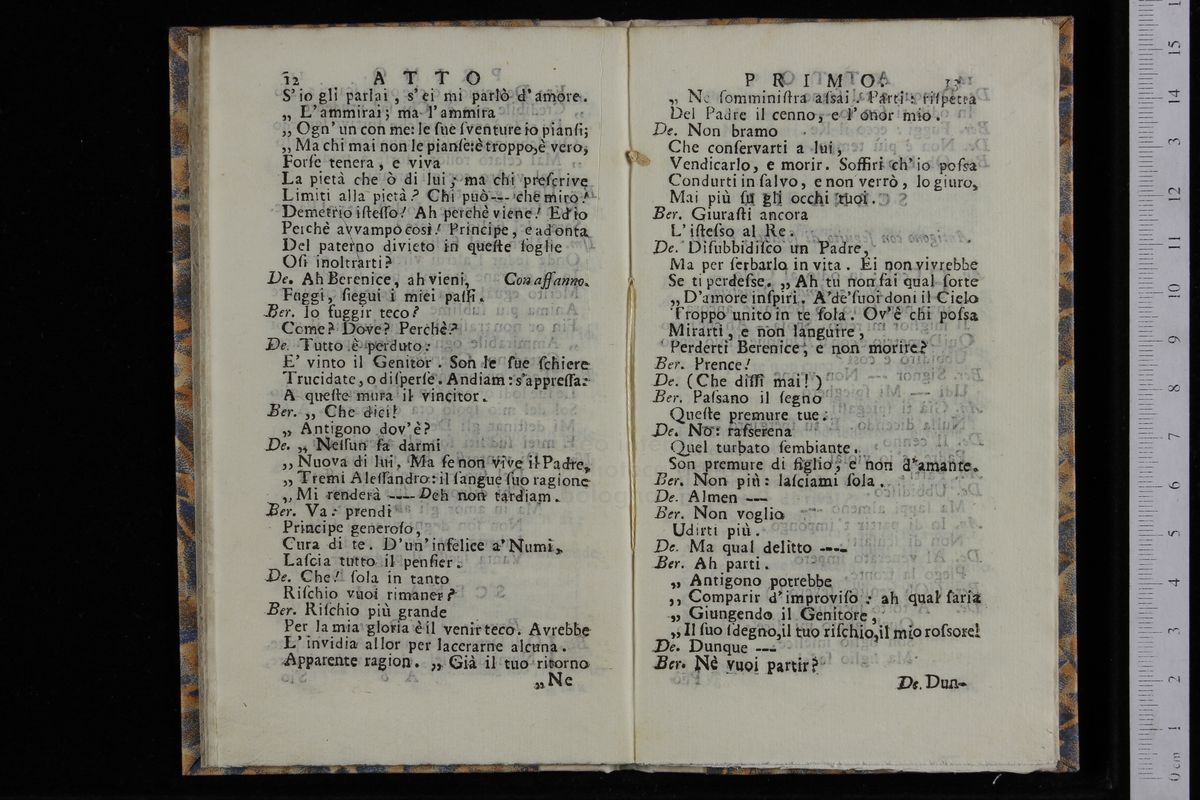 12 ATTO
S' io gli parlai, s' ei mi parlò d' amore.
„ L' ammirai; ma l' ammira
„ Ogn' un con me: le ſue ſventure io pianſi;
„ Ma chi mai non le pianſe: è troppo, è vero,
Forſe tenera, e viva
La pietà che ò di lui; ma chi preſcrive
Limiti alla pietà? Chi può--- che miro!
Demetrio iſteſſo! Ah perchè viene! Ed io
Perchè avvampo così! Principe, e ad onta
Del paterno divieto in queſte ſoglie
Oſi inoltrarti?
De. Ah Berenice, ah vieni, Con affanno.
Fuggi, ſiegui i miei paſſi.
Ber. Io fuggir teco?
Come? Dove? Perchè?
De. Tutto è perduto:
E' vinto il Genitor. Son le ſue ſchiere
Trucidate, o diſperſe. Andiam: s'appreſſa:
A queſte mura il vincitor.
Ber. „ Che dici!
„ Antigono dov' è?
De. „ Neſſun ſa darmi
„ Nuova di lui, Ma ſe non vive il Padre,
„ Tremi Aleſſandro: il ſangue ſuo ragione
„ Mi renderà ---- Deh non tardiam.
Ber. Va: prendi
Principe generoſo,
Cura di te. D'un' infelice a' Numi,
Laſcia tutto il penſier.
De. Che! ſola in tanto
Riſchio vuoi rimaner?
Ber. Riſchio più grande
Per la mia gloria è il venir teco. Avrebbe
L' invidia allor per lacerarne alcuna.
Apparente ragion. „ Già il tuo ritorno
„ Ne
PRIMO. 13
„ Ne ſomminiſtra aſsai. Parti: riſpetta
Del Padre il cenno, e l' onor mio.
De. Non bramo
Che conſervarti a lui,
Vendicarlo, e morir. Soffiri ch' io poſsa
Condurti in ſalvo, e non verrò, lo giuro,
Mai più ſu gli occhi tuoi.
Ber. Giuraſti ancora
L' iſteſso al Re.
De. Diſubbidiſco un Padre,
Ma per ſerbarlo in vita. Ei non vivrebbe
Se ti perdeſse. „ Ah tu non ſai qual ſorte
„ D'amore inſpiri. A' de' ſuoi doni il Cielo
Troppo unito in te ſola. Ov' è chi poſsa
Mirarti, e non languire,
Perderti Berenice, e non morire?
Ber. Prence!
De. (Che diſſi mai!)
Ber. Paſsano il ſegno
Queſte premure tue.
De. No: raſserena
Quel turbato ſembiante.
Son premure di figlio, e non d'amante.
Ber. Non più: laſciami ſola.
De. Almen ---
Ber. Non voglio
Udirti più.
De. Ma qual delitto ----
Ber. Ah parti.
„ Antigono potrebbe
„ Comparir d'improviſo: ah qual ſaria
„ Giungendo il Genitore,
„ Il ſuo ſdegno, il tuo riſchio, il mio roſsore!
De. Dunque ---
Ber. Nè vuoi partir?
De. Dun-